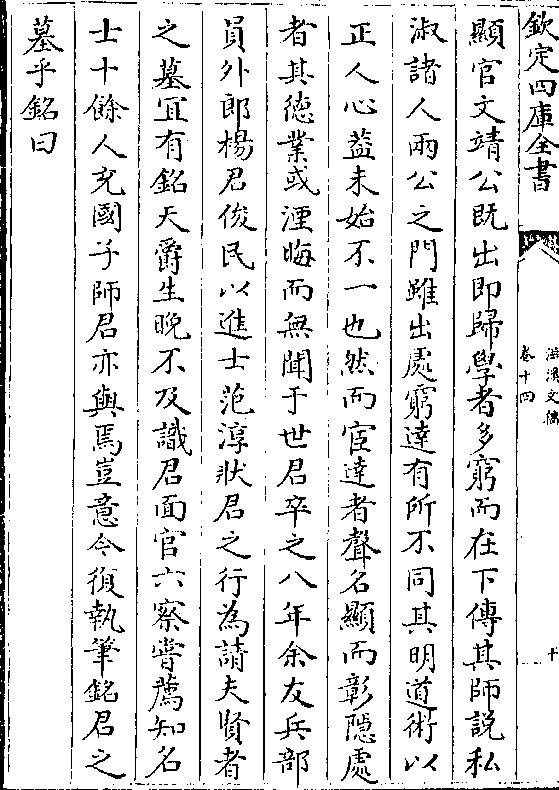 欽定四庫全書
滋溪文稿
卷十四
十
顯官文靖公既出即歸學者多窮而在下傳其師說私
淑諸人兩公之門雖出處窮達有所不同其明道術以
正人心葢未始不一也然而宦達者聲名顯而彰隱處
者其德業或湮晦而無聞于世君卒之八年余友兵部
員外郎楊君俊民以進士范淳狀君之行為請夫賢者
之墓宜有銘天爵生晚不及識君面官六察嘗薦知名
士十餘人充國子師君亦與焉豈意今復執筆銘君之
墓乎銘曰